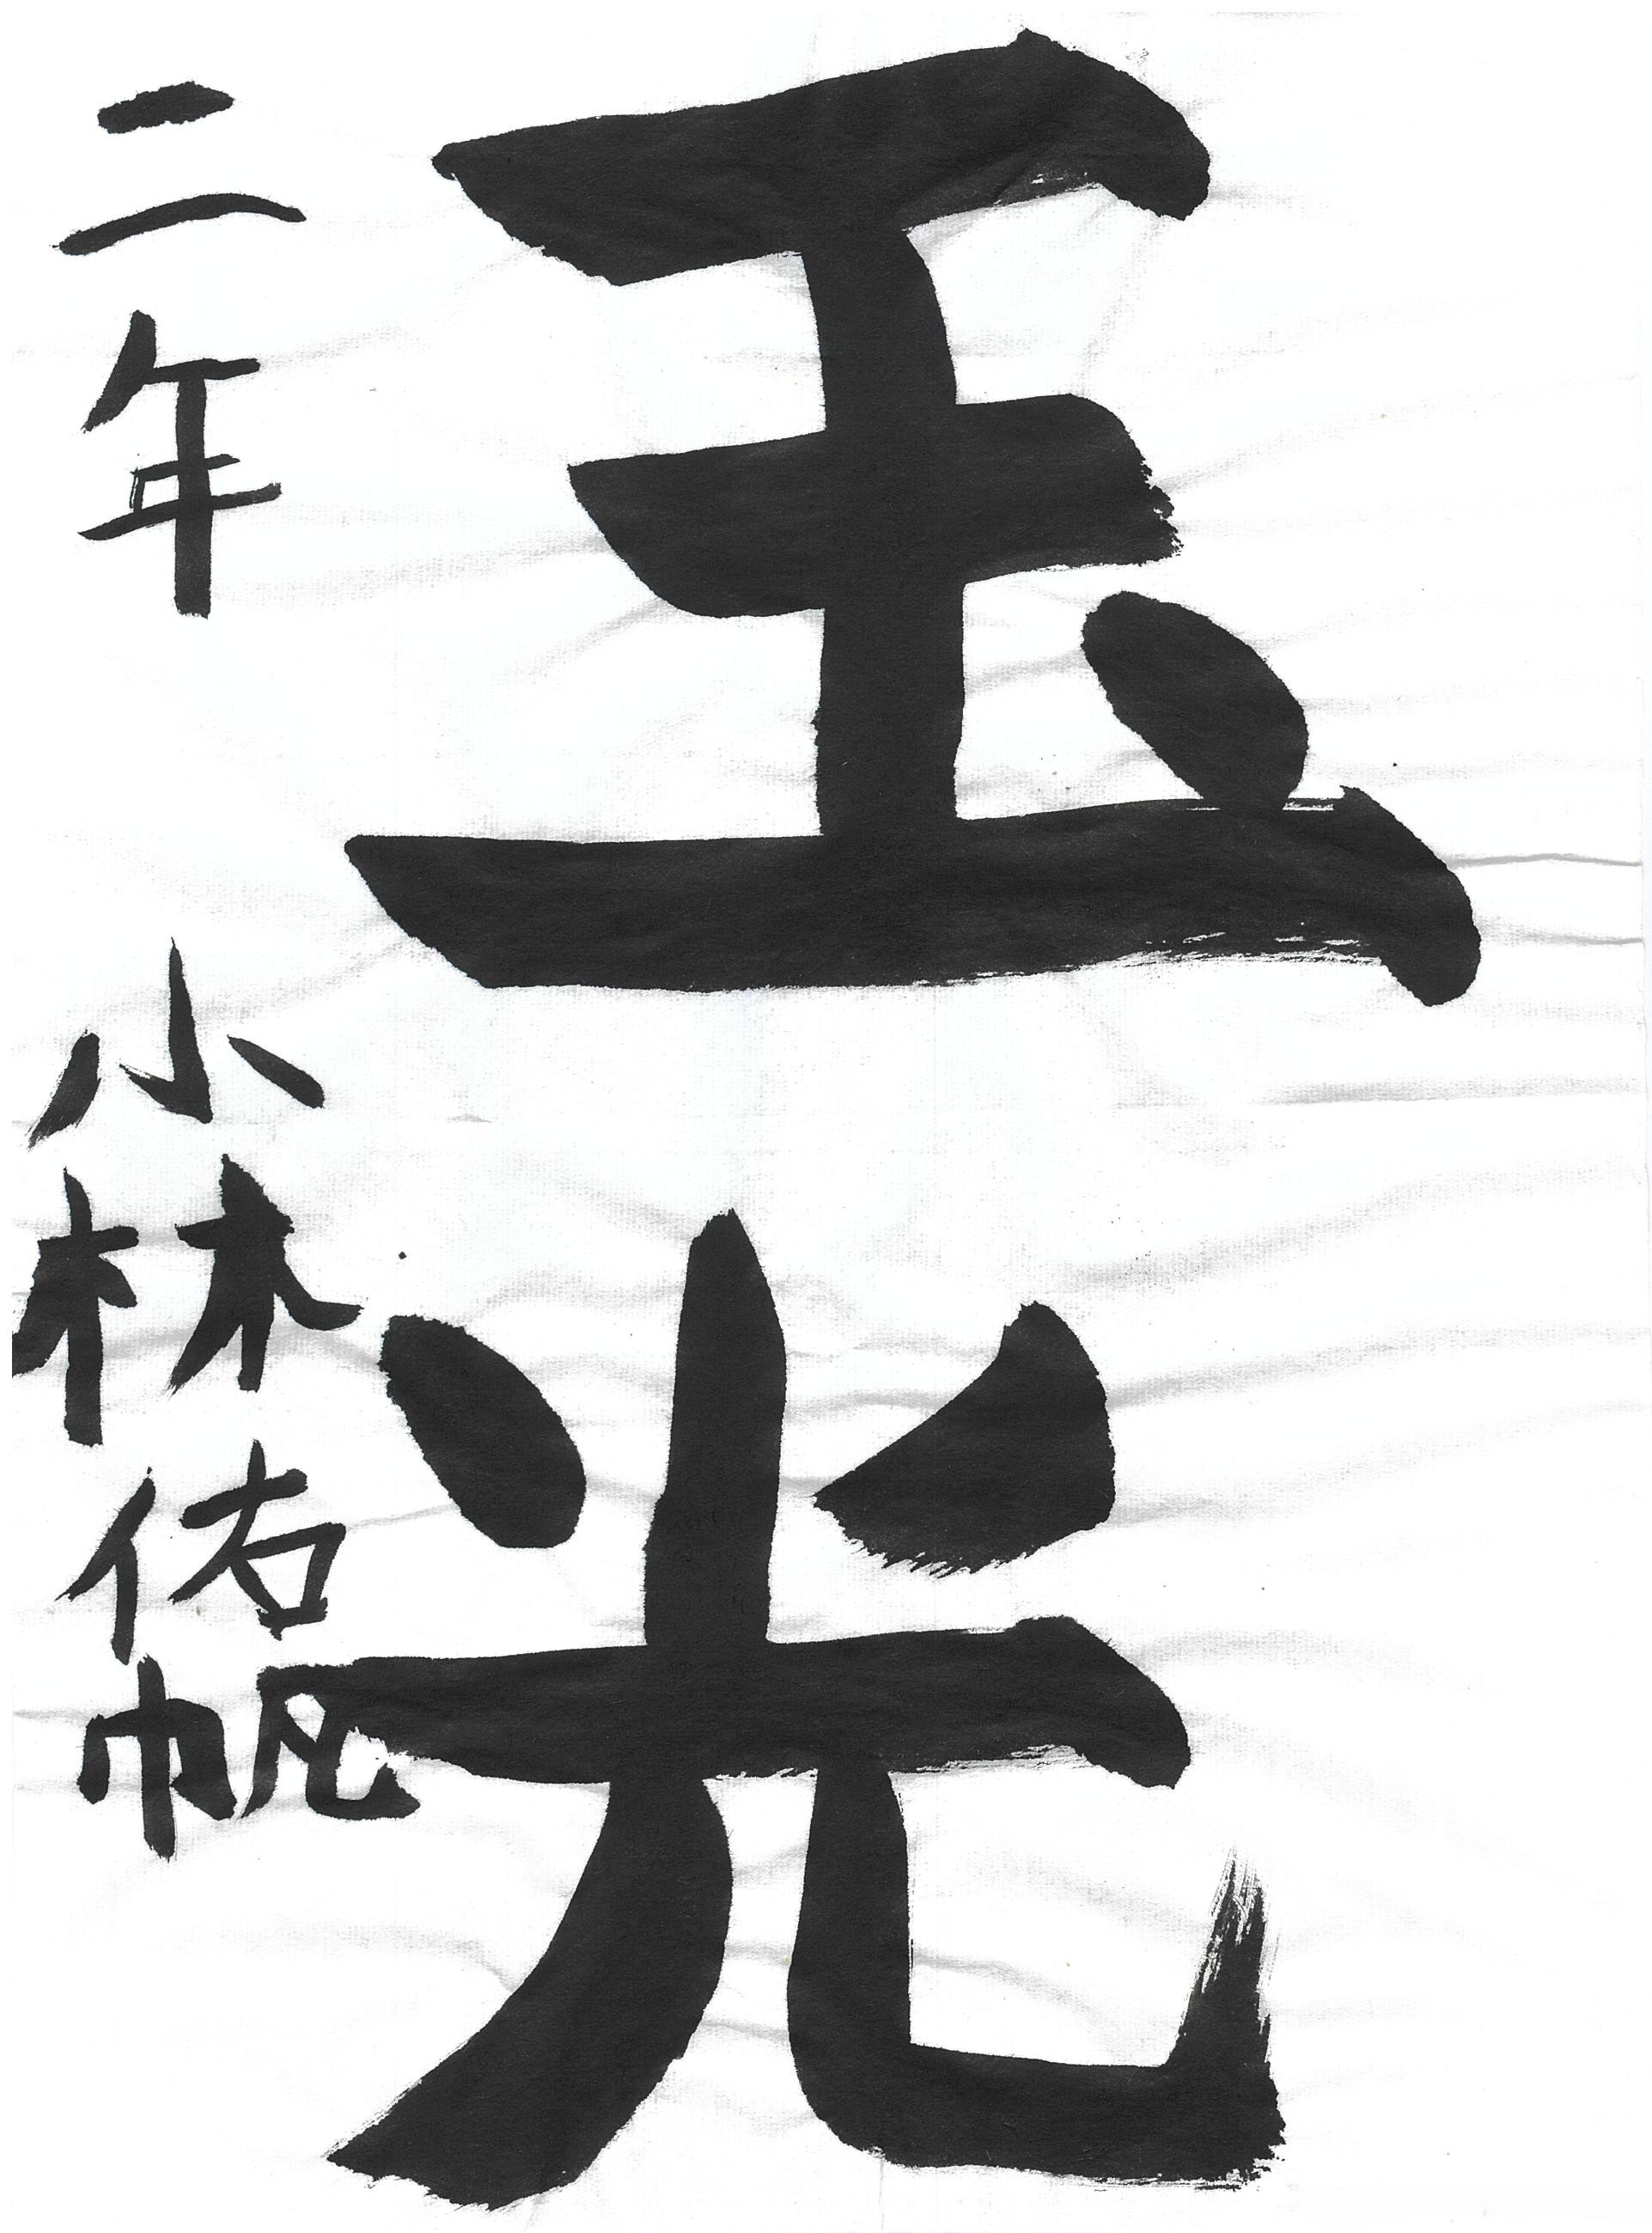 玉光
二年 小林佑帆